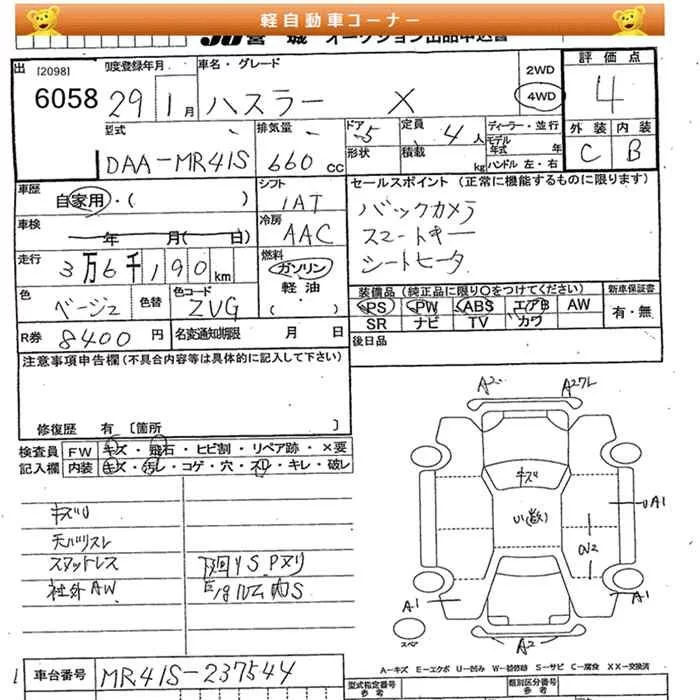 軽自動車コーナー
JU宮城 オークション出品申込書
出 [2098] 初度登録年月 車名・グレード 2WD 評価点
6058 29 1月 ハスラー X 4WD 4
型式 排気量 ドア 5 定員 4人 ディーラー・並行 外装 内装
DAA-MR41S 660cc 形状 積載 kg モデル年式 年 ハンドル 左・右 C B
車歴 シフト セールスポイント (正常に機能するものに限ります)
自家用・( ) IAT バックカメラ
車検 冷房 スマートキー
年 月( 日) AAC シートヒータ
走行 燃料
3万6千190km ガソリン
軽油
( )
装備品 (純正品に限り○をつけてください) 新車保証書
色 色替 色コード PS PW ABS エアB AW 有・無
ベージュ ZVG SR ナビ TV カワ
R券 8400円 名変通知期限 月 日 後日品
注意事項申告欄(不具合内容等は具体的に記入して下さい)
修復歴 有 [箇所 ]
検査員 FW キズ・飛石・ヒビ割・リペア跡・×要
記入欄 内装 キズ・汚レ・コゲ・穴・スレ・キレ・破レ
キズU
天バリスレ
スマットレス
社外AW
A2 A2ワレ
キズ
UA1
A1 A1
スペア
A2
A-キズ E-エクボ U-凹み W-補修跡 S-サビ C-腐食 XX-交換済
車台番号 MR41S-237544 型式指定番号 類別区分番号
参考 参考